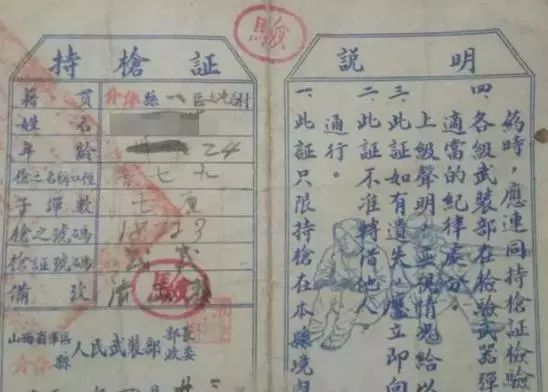 驗
持槍証
籍貫 介休縣 一區 村
姓名
年齡 24
槍之名稱口徑 七九
子彈數 七
槍之號碼 18223
槍証號碼
備攷 驗
山西省軍區
介休縣
人民武裝部
部長
政委
說明
一、此証只限持槍在本縣境
通行。
二、此証不准轉借他人
三、此証如有遺失應立即向
上級聲明，並視情況給
適當的紀律處分。
四、各級武裝部在檢驗武器彈
葯時，應連同持槍証檢驗